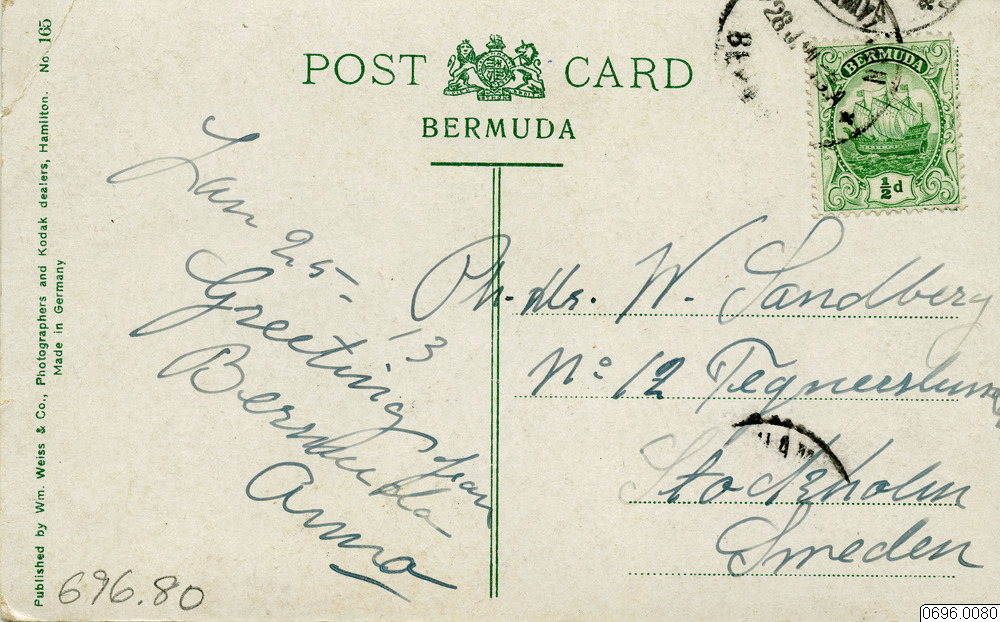 Published by Wm. Weiss & Co., Photographers and Kodak dealers, Hamilton. No 165
Made in Germany
POST CARD
BERMUDA
BERMUDA
½d
28 J
81
Jan 25-
13
Greeting
from
Bermuda
Anna
Ph. Mr. W. Sandberg
No 12 Tegnerslunden
Stockholm
Sweden
696.80
0696.0080